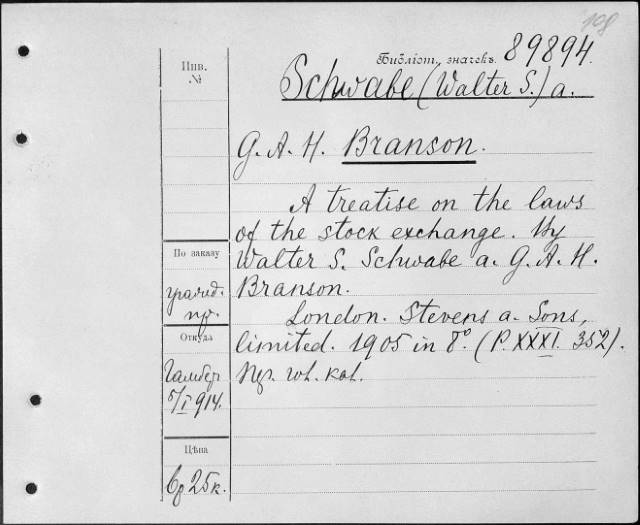 108
Библіот. значекъ 89894.
Schwabe (Walter S.) a.
G. A. H. Branson.
A treatise on the laws
of the stock exchange. By
Walter S. Schwabe a. G. A. H.
Branson.
London. Stevens a. Sons,
limited. 1905 in 8°. (P. XXXI. 352).
Инв.
№
По заказу
гражд.
пр.
Откуда
5/I 914.
Цѣна
6 р 25 к.